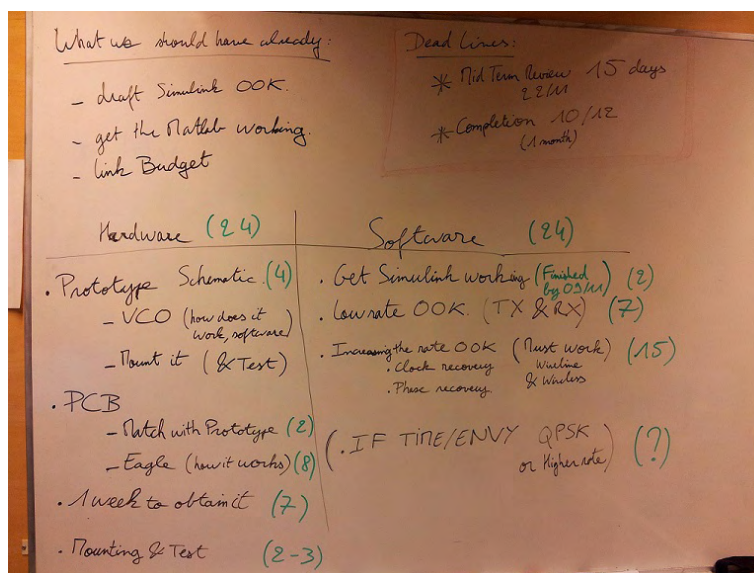 What we should have already:
- draft Simulink OOK.
- get the Matlab working.
- link Budget
Dead Lines:
* Mid Term Review 15 days
22/11
* Completion 10/12
(1 month)
Hardware (24)
. Prototype Schematic. (4)
- VCO (how does it
work, software)
- Mount it (& Test)
. PCB
- Match with Prototype (2)
- Eagle (how it works) (8)
. 1 week to obtain it (7)
. Mounting & Test (2-3)
Software (24)
. Get Simulink working (Finished
by 09/11) (2)
. Low rate OOK. (TX & RX) (7)
. Increasing the rate OOK (Must work) (15)
. Clock recovery Wireline
. Phase recovery & Wireless
(. IF TIME/ENVY QPSK
or Higher rate) (?)